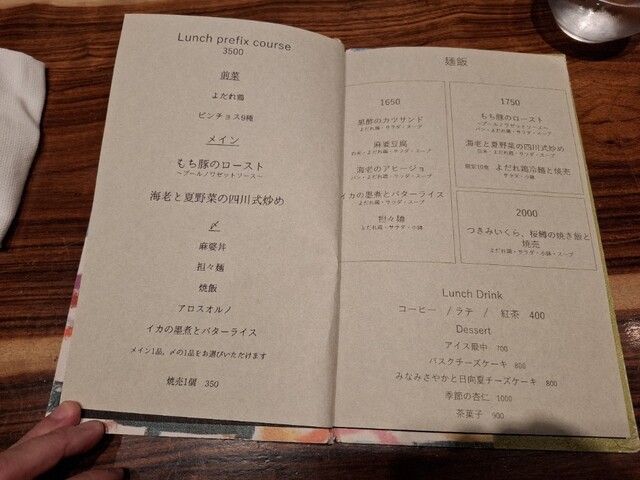 Lunch prefix course
3500
前菜
よだれ鶏
ピンチョス9種
メイン
もち豚のロースト
～ブールノワゼットソース～
海老と夏野菜の四川式炒め
〆
麻婆丼
担々麺
焼飯
アロスオルノ
イカの墨煮とバターライス
メイン1品、〆の1品をお選びいただけます
焼売1個 350
麺飯
1650
黒酢のカツサンド
よだれ鶏・サラダ・スープ
麻婆豆腐
白米・よだれ鶏・サラダ・スープ
海老のアヒージョ
パン・よだれ鶏・サラダ・スープ
イカの墨煮とバターライス
よだれ鶏・サラダ・スープ
担々麺
よだれ鶏・サラダ・小鉢
1750
もち豚のロースト
～ブールノワゼットソース～
パン・よだれ鶏・サラダ・スープ
海老と夏野菜の四川式炒め
白米・よだれ鶏・サラダ・スープ
限定10食 よだれ鶏冷麺と焼売
サラダ・小鉢
2000
つきみいくら、桜鱒の焼き飯と
焼売
よだれ鶏・サラダ・小鉢・スープ
Lunch Drink
コーヒー / ラテ / 紅茶 400
Dessert
アイス最中 700
バスクチーズケーキ 800
みなみさやかと日向夏チーズケーキ 800
季節の杏仁 1000
茶菓子 900